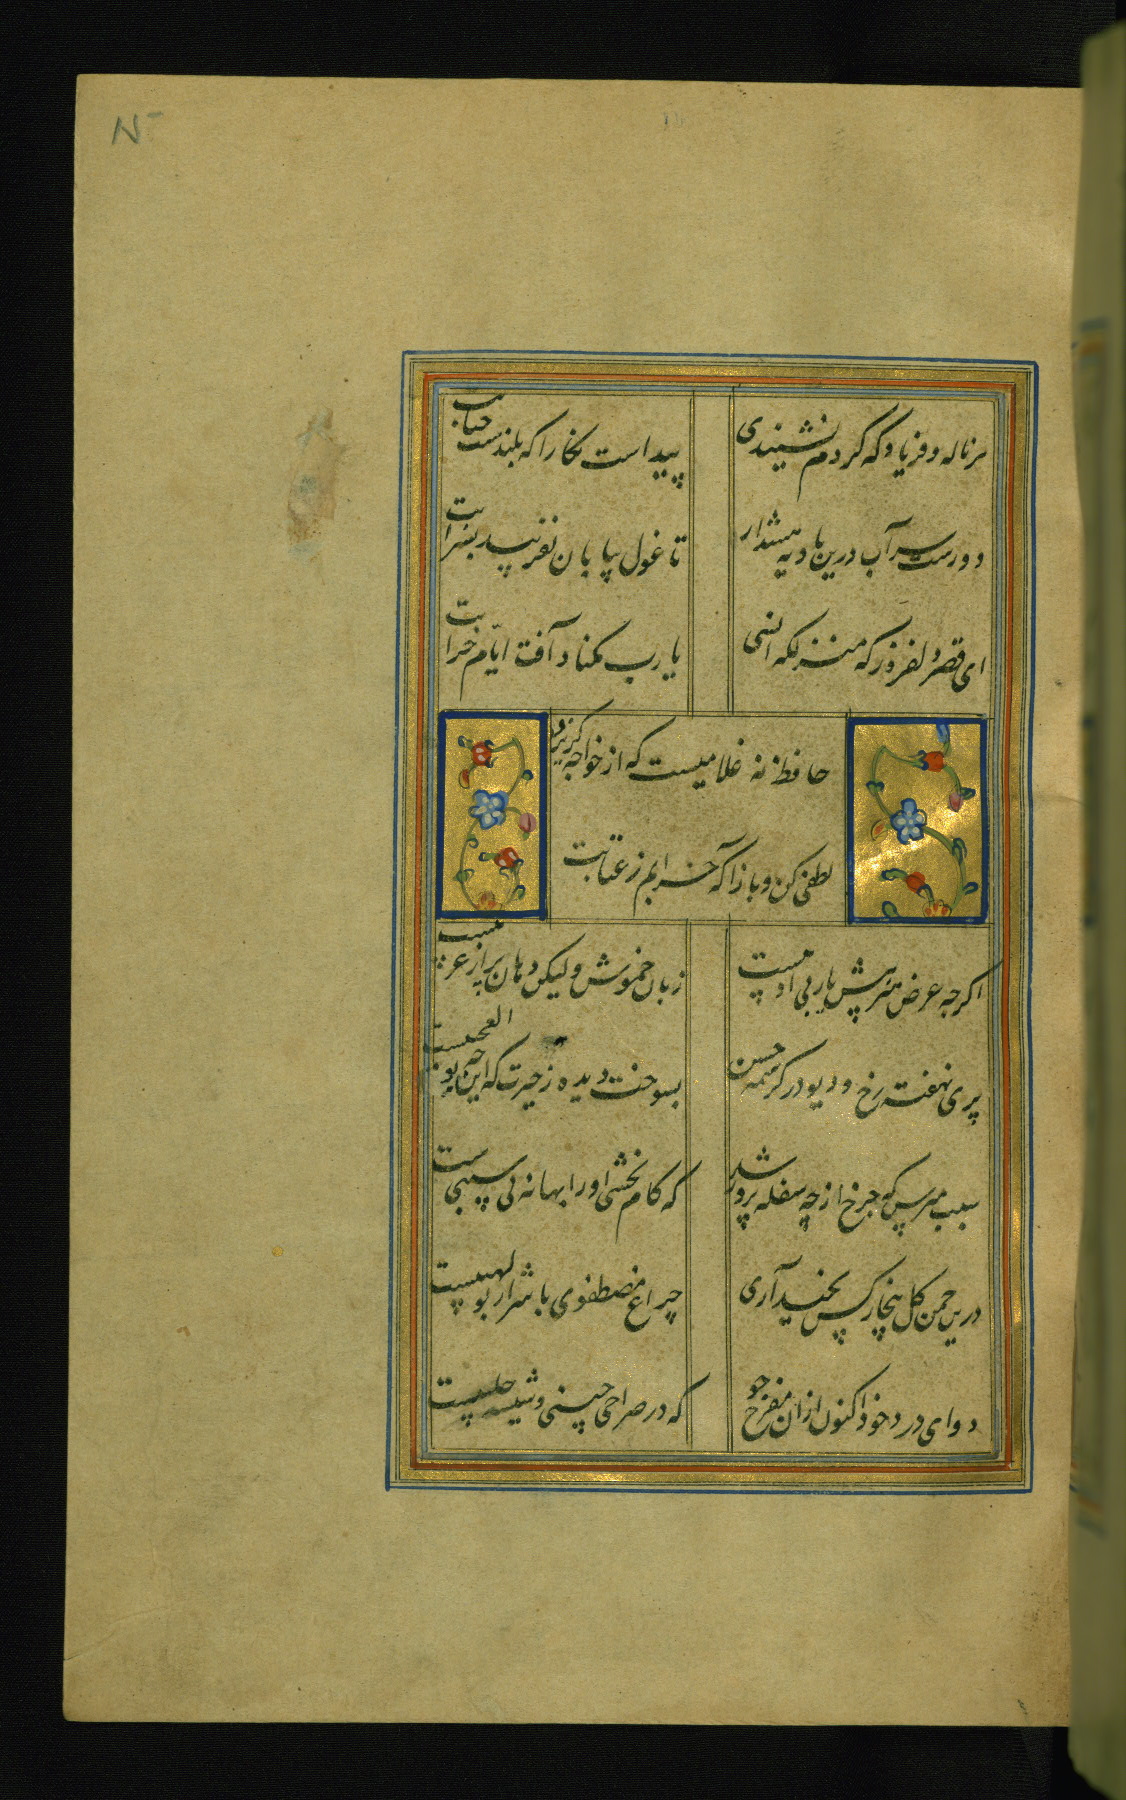 هر ناله و فریاد که کردم نشنیدی پیداست نگارا که بلندست جنابت
دورست سر آب درین بادیه هشدار تا غول بیابان نفریبد بسرابت
ای قصر دلفروز که منزلگه انسی یا رب مکناد آفت ایّام خرابت
حافظ نه غلامیست که از خواجه گریزد
لطفی کن و بازآ که خرابم ز عتابت
اگرچه عرض هنر پیش یار بی ادبیست زبان خموش ولیکن دهان پر از عربیست
پری نهفته رخ و دیو در کرشمه حسن بسوخت دیده ز حیرت که این چه بوالعجبیست
سبب مپرس که چرخ از چه سفله پرور شد که کام بخشی او را بهانه بی سببیست
درین چمن گل بی خار کس نچید آری چراغ مصطفوی با شرار بولهبیست
دوای درد خود اکنون از آن مفرح جو که در صراحی چینی و شیشه حلبیست